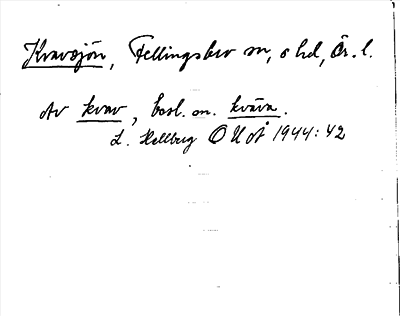 Kvavsjön, Fellingsbro sn, s hd, Ör. l.
Av kvav, besl. m. kväva.
L. Hellberg OUÅ 1944:42